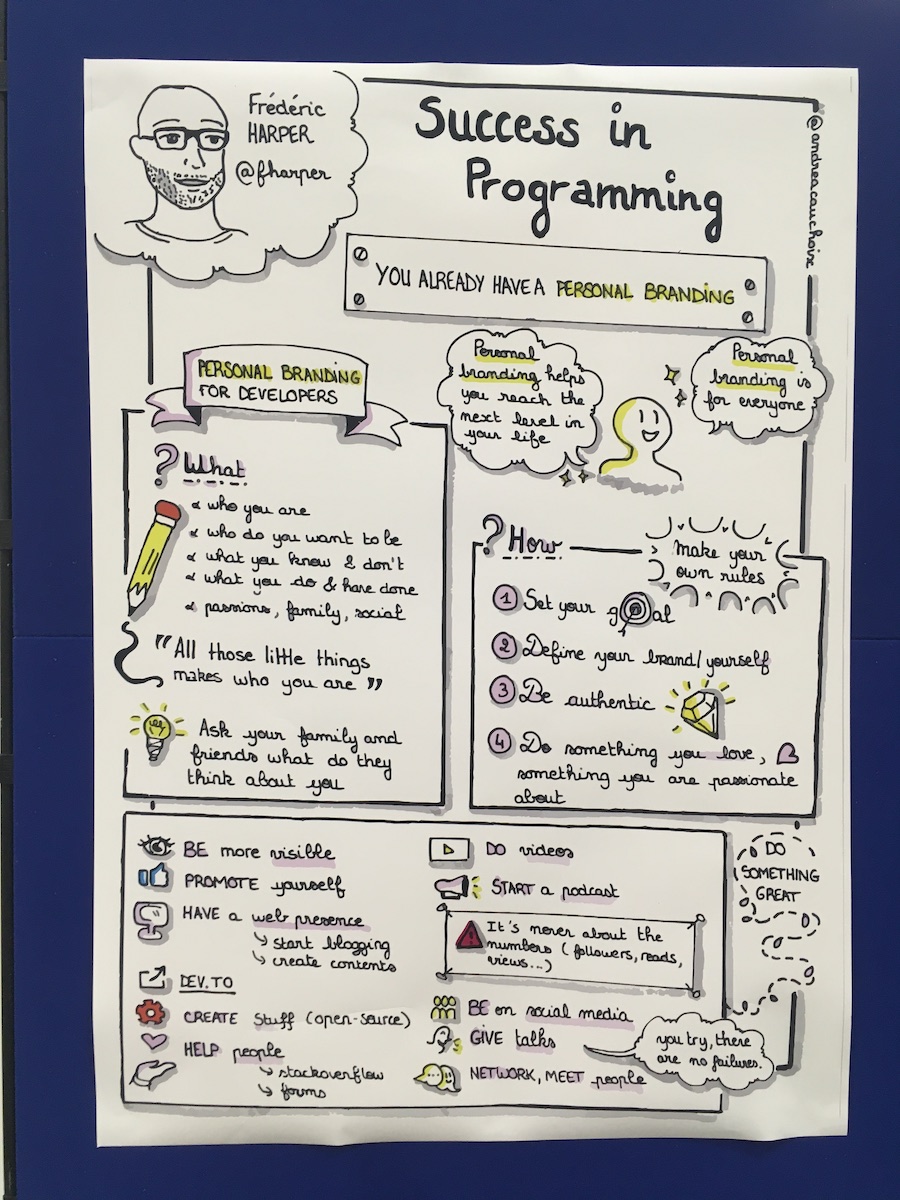 Frédéric
HARPER
@fharper
Success in
Programming
@andreacauchoix
YOU ALREADY HAVE A PERSONAL BRANDING
PERSONAL BRANDING
FOR DEVELOPERS
Personal
branding helps
you reach the
next level in
your life
Personal
branding is
for everyone
? What
who you are
who do you want to be
what you know & don't
what you do & have done
passions, family, social
"All those little things
makes who you are"
Ask your family and
friends what do they
think about you
? How
Make your
own rules
1 Set your goal
2 Define your brand/yourself
3 Be authentic
4 Do something you love,
something you are passionate
about
BE more visible
PROMOTE yourself
HAVE a web presence
↳ start blogging
↳ create contents
DEV.TO
CREATE stuff (open-source)
HELP people
↳ stackoverflow
↳ forms
DO videos
START a podcast
It's never about the
numbers (followers, reads,
views...)
BE on social media
GIVE talks
NETWORK, MEET people
you try, there
are no failures.
DO
SOMETHING
GREAT